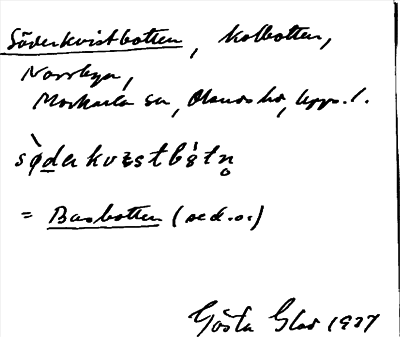 Söderkvistbotten, Kolbotten,
Norrbyn,
Morkarla sn, Olands hd, Upps. l.
= Basbotten (se d. o.)
Gösta 1937